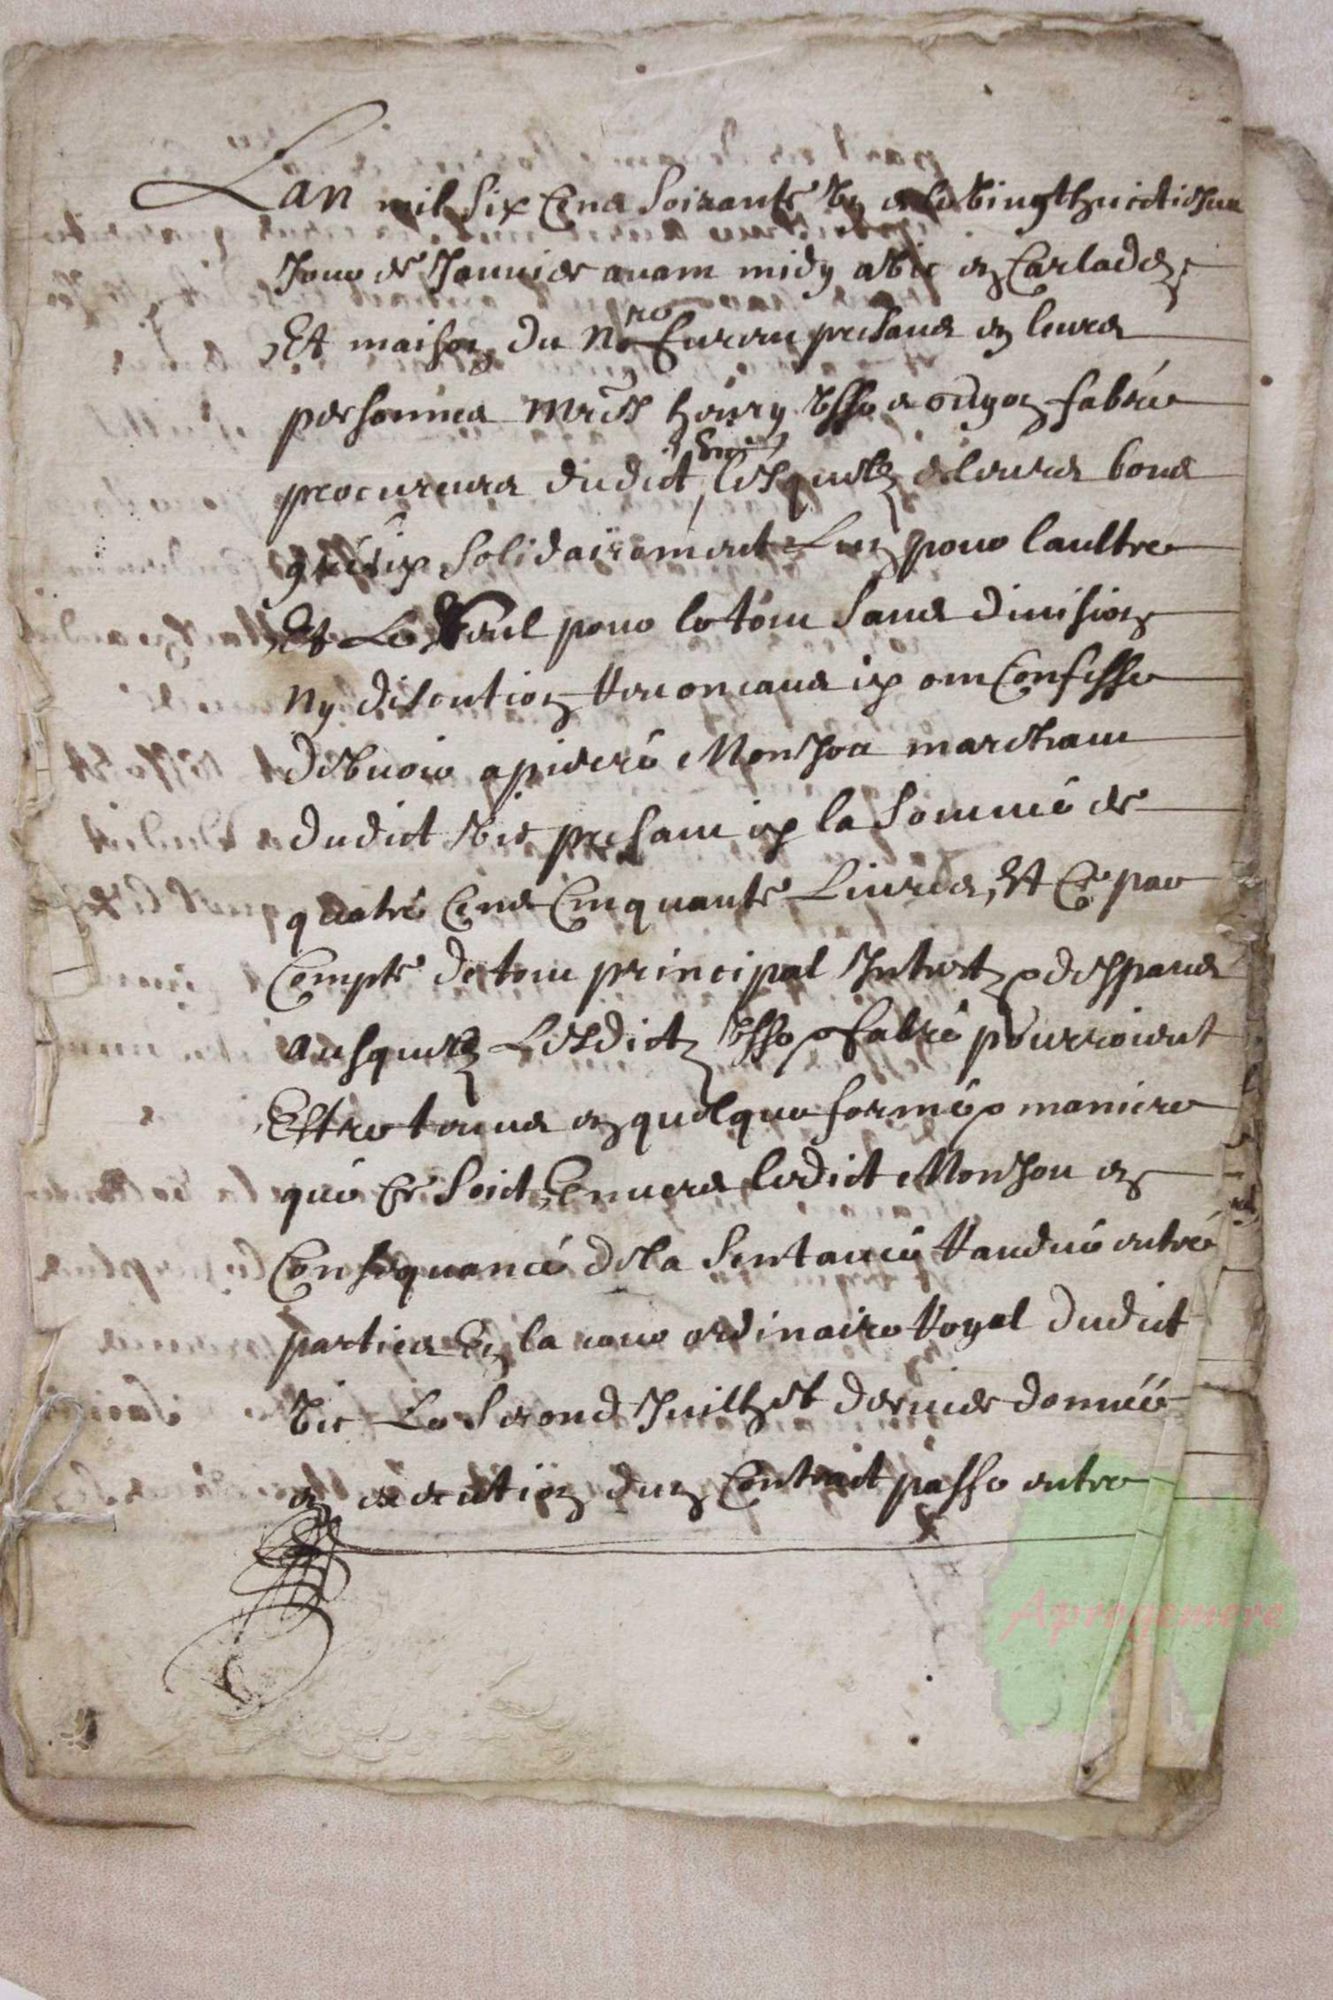 Lan mil six Cens soixante Un & le vingt huictiesme
Jour de Januier auant midy a Vic en Carladez
Et maison du No^re fureur presans en leurs
personnes Henry & fabre
procureurs dudict lesquelz de leurs bons
gres solidairement Lun pour laultre
Et Le seul pour le tout sans diuision
Ny discution Renoncans ont Confesse
debuoir a pierre Monjou marchant
dudict Vic presant la somme de
quatre Cens Cinquante Liures, Et Ce par
Compte de tout principal Intrest & despans
Ausquelz Lesdictz & fabre pourroient
Estre tenus en quelque forme & maniere
que Ce soict Enuers ledict Monjou en
Consequance de la Sentance Randue entre
parties En la cour ordinaire Royal dudict
Vic Le segond Juilhet dernier donnee
en execution dun Contraict passe entre
Aprogemere